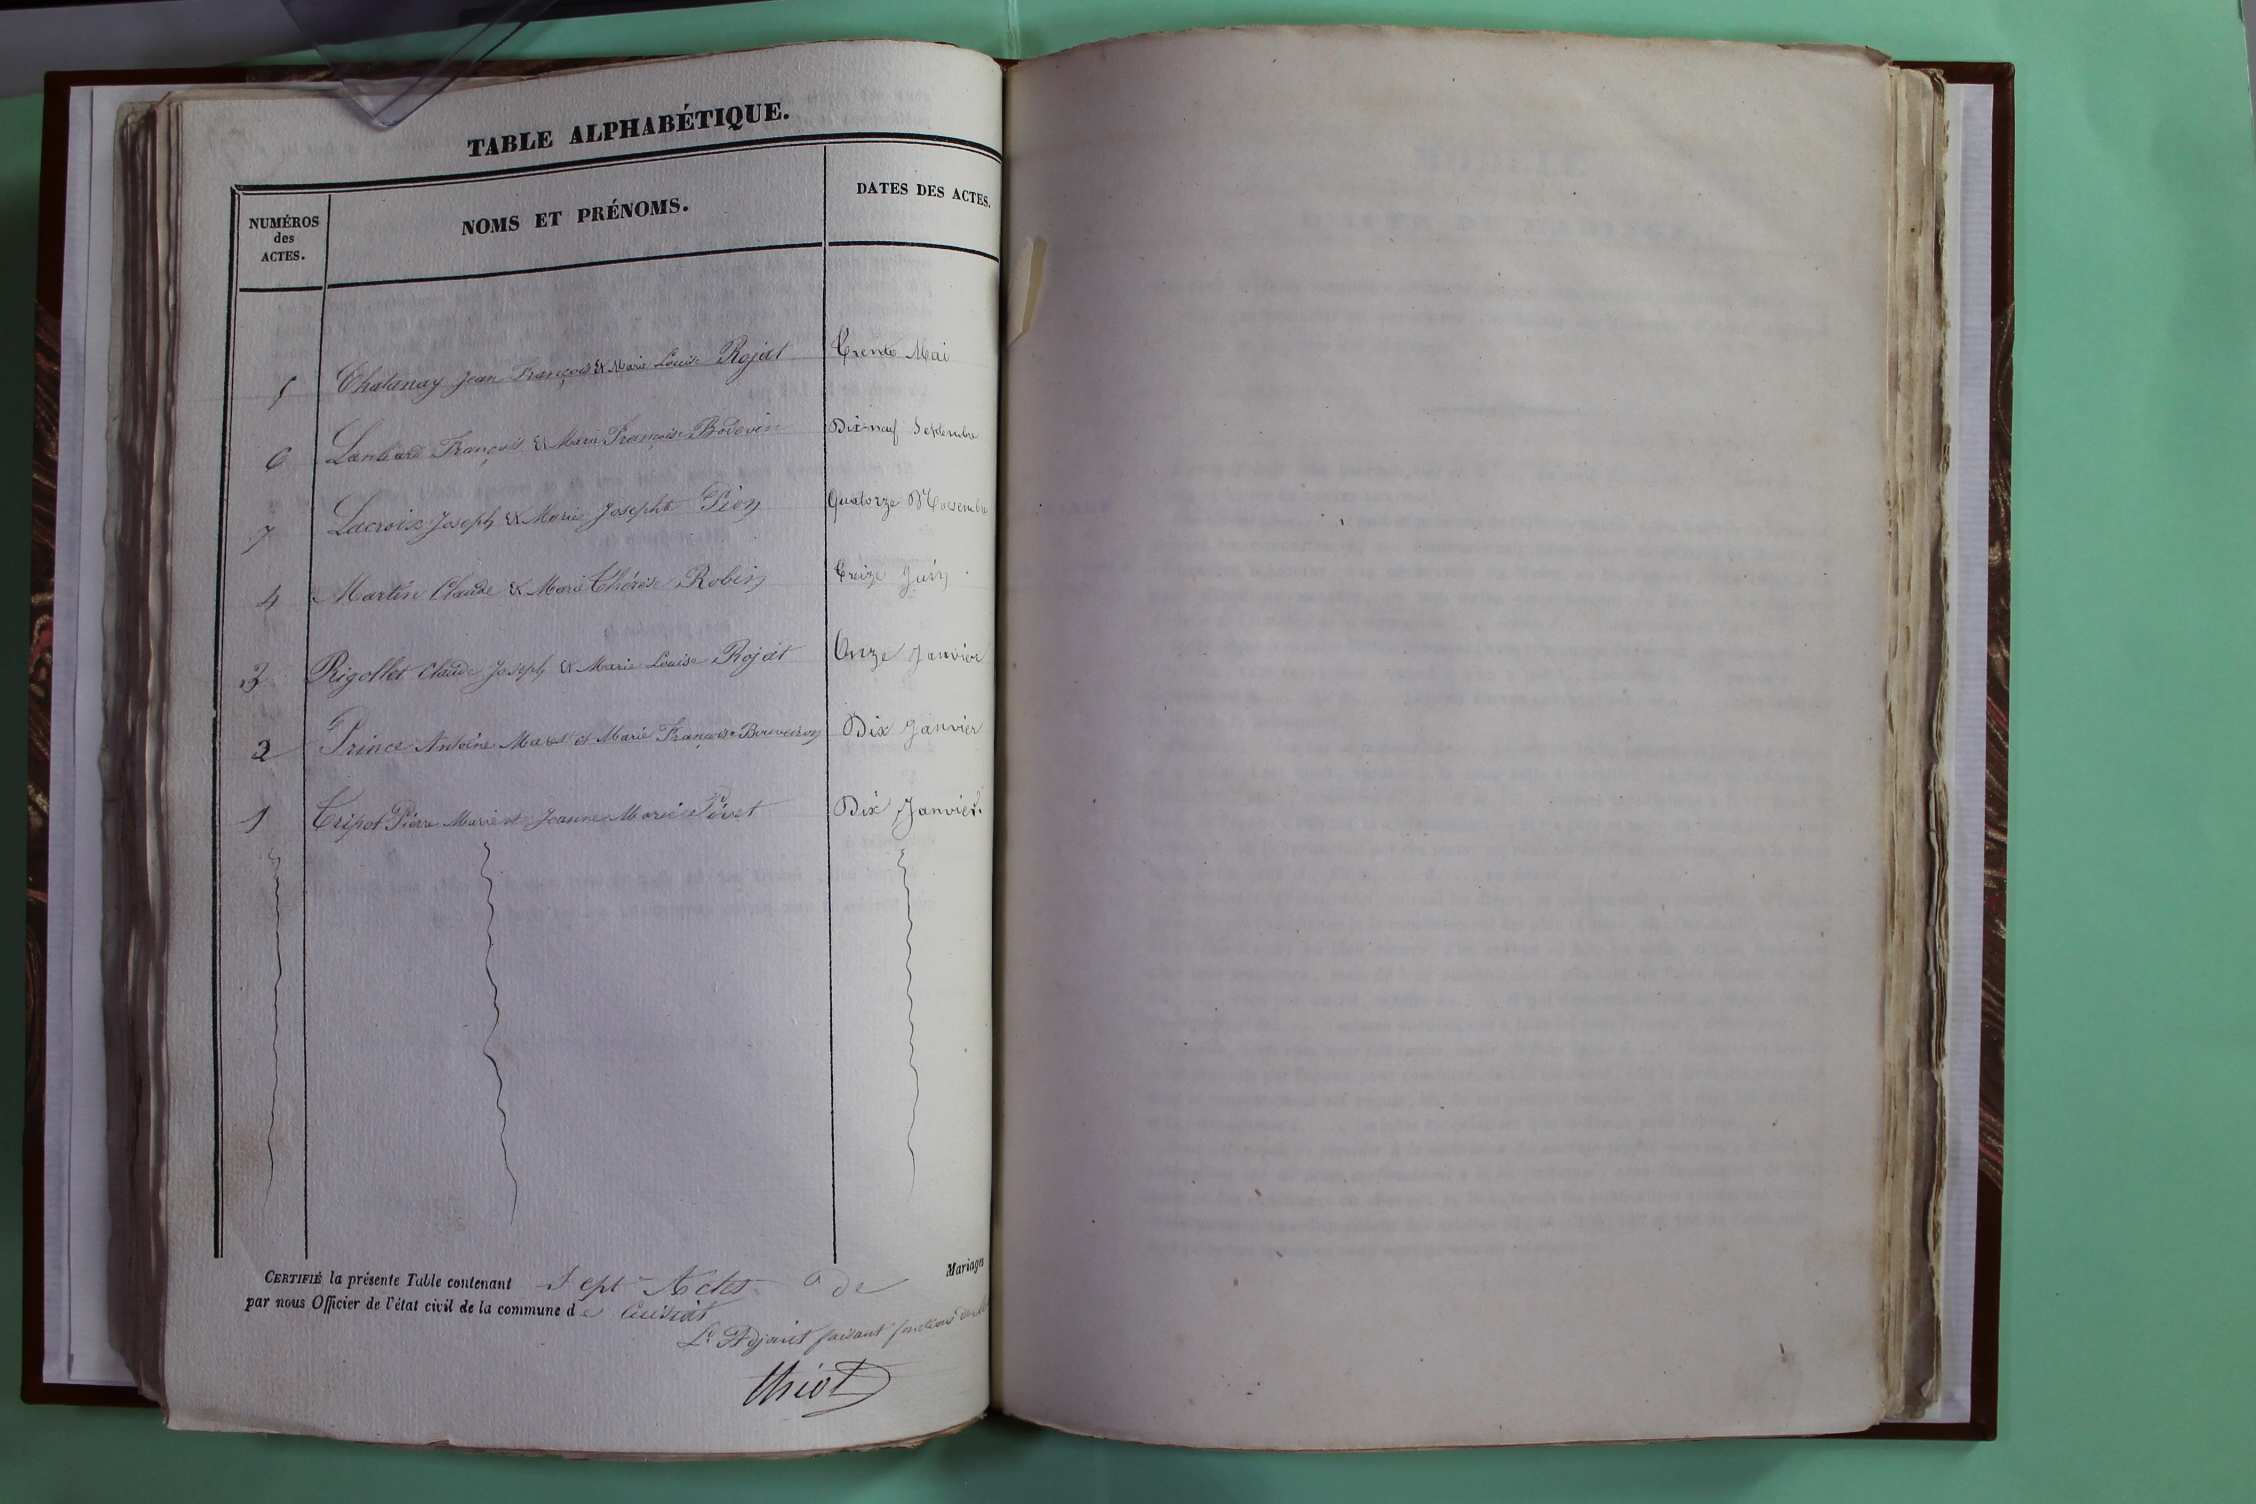 TABLE ALPHABÉTIQUE.
NUMÉROS des ACTES. NOMS ET PRÉNOMS. DATES DES ACTES.
5 Chatanay Jean François et Marie Louise Rojat Trente Mai
6 Lambard François et Marie Françoise Bodevin Dix-neuf Septembre
7 Lacroix Joseph et Marie Josephte Pion Quatorze Novembre
4 Martin Claude et Marie Thérèse Robin Treize Juin
3 Rigollet Claude Joseph et Marie Louise Rojat Onze Janvier
2 Prince Antoine et Marie Françoise Dix Janvier
1 Tripot Pierre Marie et Jeanne Marie Pivet Dix Janvier
CERTIFIÉ la présente Table contenant Sept Actes de Mariages
par nous Officier de l'état civil de la commune de Cuisiat
L'Adjoint faisant fonctions
Thiot